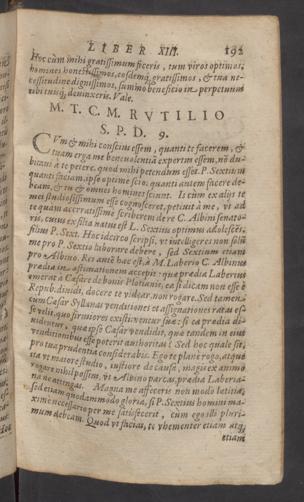 LIBER XIII. 192
Hoc cùm mihi gratissimum feceris, tum viros optimos,
homines honestissimos, eosdemq́; gratissimos, & tua ne-
cessitudine dignissimos, summo beneficio in perpetuum
tibi tuisq́; devinxeris. Vale.
M. T. C. M. RVTILIO
S. P. D. 9.
CVm & mihi conscius essem, quanti te facerem, &
tuam erga me benevolentiā expertus essem, nō du-
bitavi à te petere, quod mihi petendum esset. P. Sextium
quanti faciam, ipse optimè scio: quanti autem facere de-
beam, & tu & omnes homines sciunt. Is cùm ex aliis te
mei studiosissimum esse cognosceret, petivit à me, vt ad
te quàm accuratissimè scriberem de re C. Albini senato-
ris, cuius ex filia natus est L. Sextius optimus adolescēs,
filius P. Sext. Hoc idcirco scripsi, vt intelligeres non solū
me pro P. Sextio laborare debere, sed Sextium etiam
pro Albino. Res autē hæc est. à M. Laberio C. Albinius
prædia in æstimationem accepit: quæ prædia Laberius
emerat à Cæsare de bonis Plotianis, ea si dicam non esse è
Repub. dividi, docere te videar, non rogare. Sed tamen
cum Cæsar Syllanas venditiones et assignationes ratas es-
se velit, quo firmiores existimentur suæ: si ea prædia di-
videntur, quæ ipse Cæsar vendidit, quæ tandem in eius
venditionibus esse poterit authoritas? Sed hoc quale sit,
pro tua prudentia considerabis. Ego te planè rogo, atque
ita vt maiore studio, iustiore de causa, magis ex animo
rogare nihil possim, vt Albino parcas, prædia Laberia-
na ne attingas. Magna me affeceris non modò lætitia,
sed etiam quodammodo gloria, si P. Sextius homini ma-
ximè necessario per me satisfecerit, cùm ego illi pluri-
mum debeam. Quod vt facias, te vhementer etiam atq;
etiam